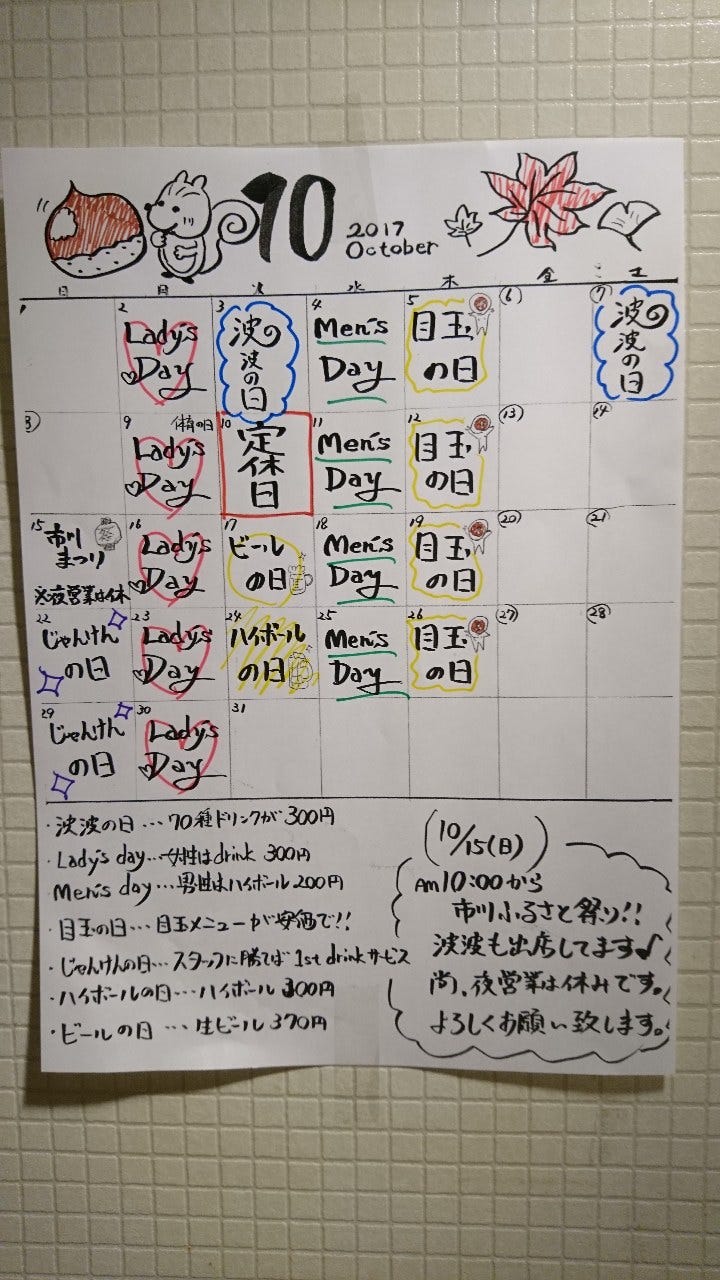 10
2017
October
日 月 火 水 木 金 土
1
2 Lady's Day
3 波の波の日
4 Men's Day
5 目玉の日
6
7 波の波の日
8
9 体育の日 Lady's Day
10 定休日
11 Men's Day
12 目玉の日
13
14
15 市川まつり ※夜営業は休
16 Lady's Day
17 ビールの日
18 Men's Day
19 目玉の日
20
21
22 じゃんけんの日
23 Lady's Day
24 ハイボールの日
25 Men's Day
26 目玉の日
27
28
29 じゃんけんの日
30 Lady's Day
31
・波波の日…70種ドリンクが300円
・Lady's day…女性はdrink 300円
Men's day…男性はハイボール200円
・目玉の日…目玉メニューが安価で!!
・じゃんけんの日…スタッフに勝てば 1st drinkサービス
・ハイボールの日…ハイボール 300円
・ビールの日…生ビール 370円
(10/15(日))
Am10:00から
市川ふるさと祭り!!
波波も出店してます♪
尚、夜営業は休みです。
よろしくお願い致します。